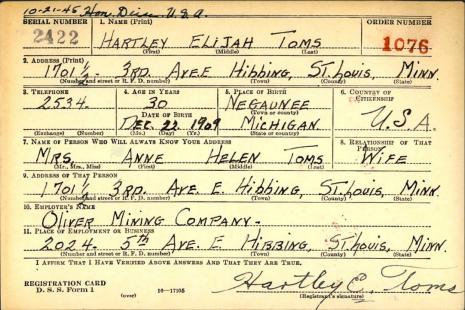 10-21-45 Hon. Disc. U.S.A.
SERIAL NUMBER 1. NAME (Print) ORDER NUMBER
2422 HARTLEY ELIJAH TOMS 1076
(First) (Middle) (Last)
2. ADDRESS (Print)
1701½ - 3RD. AVE. E HIBBING, ST. LOUIS, MINN.
(Number and street or R. F. D. number) (Town) (County) (State)
3. TELEPHONE 4. AGE IN YEARS 5. PLACE OF BIRTH 6. COUNTRY OF CITIZENSHIP
2534. 30 NEGAUNEE
(Town or county)
DATE OF BIRTH
DEC. 22 1909 MICHIGAN. U.S.A.
(Exchange) (Number) (Mo.) (Day) (Yr.) (State or country)
7. NAME OF PERSON WHO WILL ALWAYS KNOW YOUR ADDRESS 8. RELATIONSHIP OF THAT PERSON
MRS, ANNE HELEN TOMS WIFE
(Mr., Mrs., Miss) (First) (Middle) (Last)
9. ADDRESS OF THAT PERSON
1701½ 3RD. AVE. E. HIBBING, ST. LOUIS, MINN.
(Number and street or R. F. D. number) (Town) (County) (State)
10. EMPLOYER'S NAME
OLIVER MINING COMPANY-
11. PLACE OF EMPLOYMENT OR BUSINESS
2024. - 5TH AVE. E. HIBBING, ST. LOUIS, MINN.
(Number and street or R. F. D. number) (Town) (County) (State)
I AFFIRM THAT I HAVE VERIFIED ABOVE ANSWERS AND THAT THEY ARE TRUE.
REGISTRATION CARD
D. S. S. Form 1 (over) 16—17105 Hartley E. Toms
(Registrant's signature)